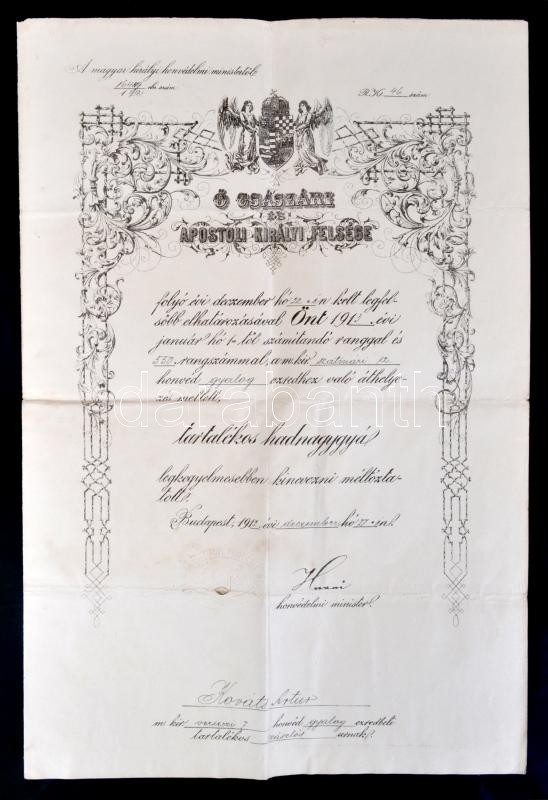 A magyar királyi honvédelmi ministertől.
eln. szám
191
R. K. 46 szám
Ő CSÁSZÁRI
ÉS
APOSTOLI KIRÁLYI FELSÉGE
folyó évi deczember hó 22-én kelt legfel-
sőbb elhatározásával Önt 1913. évi
január hó 1-től számítandó ranggal és
550 rangszámmal, a m. kir. szatmári 12.
honvéd gyalog ezredhez való áthelye-
zés mellett,
tartalékos hadnagygyá
legkegyelmesebben kinevezni méltózta-
tott.
Budapest, 1912 évi deczember hó 27-én.
Hazai
honvédelmi minister.
Kováts Artur
m. kir. verseczi 7. honvéd gyalog ezredbeli
tartalékos zászlós urnak.
darabanth